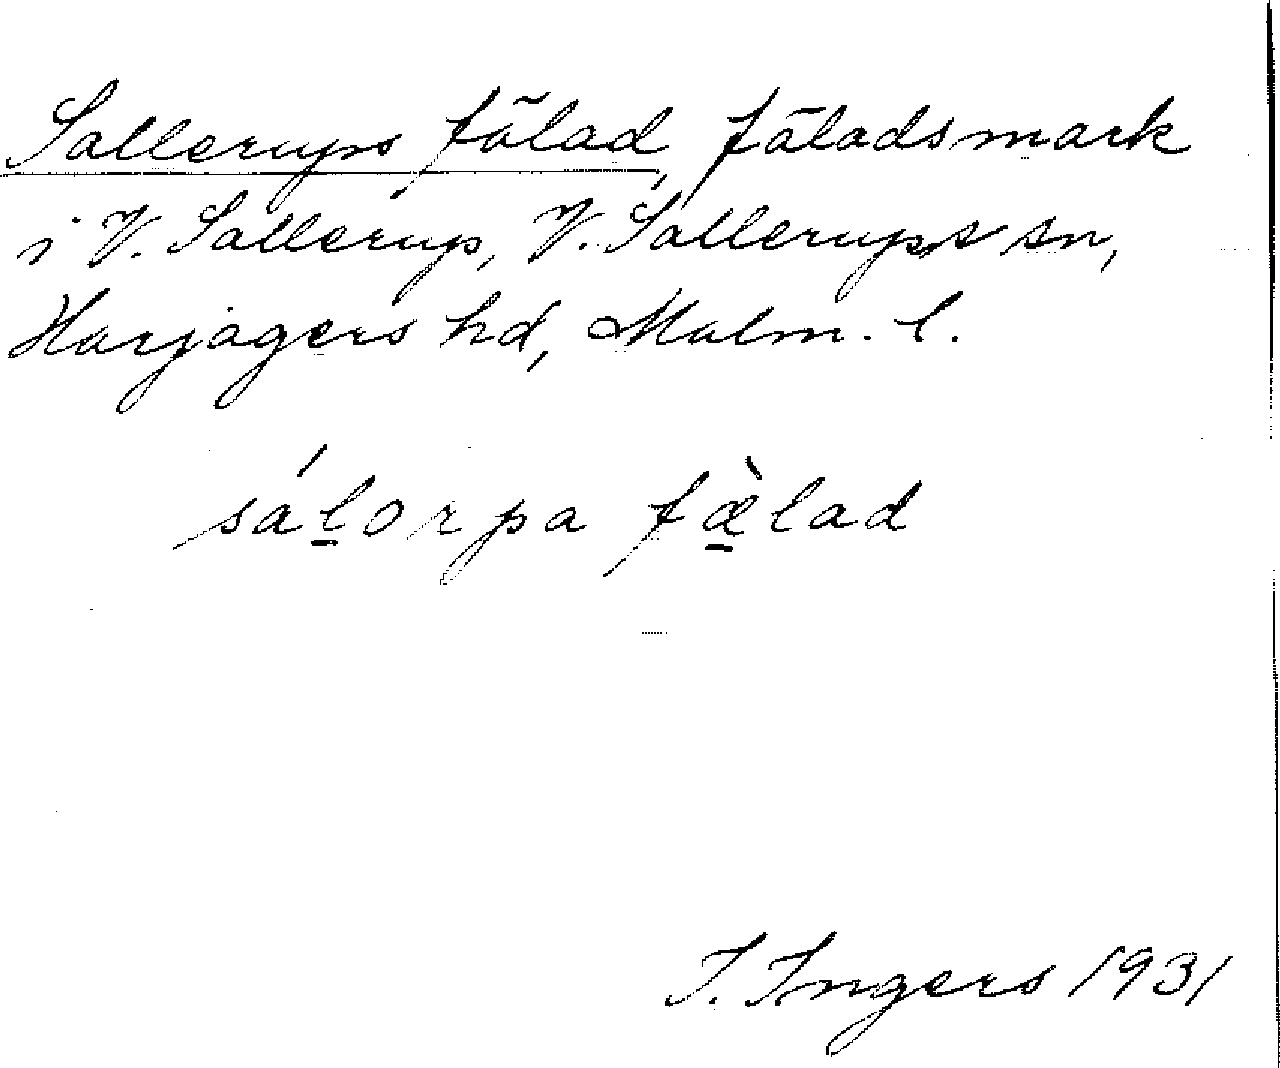 Sallerups fälad, fäladsmark
i V. Sallerup, V. Sallerups sn,
Harjagers hd, Malm. l.
sál̲orpa fæ̲̀lad
I. Ingers 1931